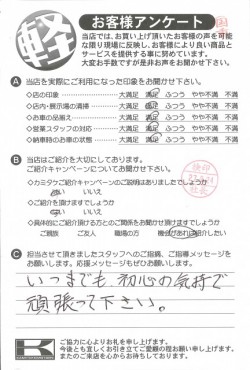 軽
お客様アンケート
当店では、お買い上げ頂いたお客様の声を可能
な限り現場に反映し、お客様により良い商品と
サービスを提供する事に努めています。
大変お手数ですが是非お声をお聞かせ下さい。
A 当店を実際にご利用になった印象をお聞かせ下さい。
◇店の印象 大満足 満足 ふつう やや不満 不満
◇店内・展示場の清掃 大満足 満足 ふつう やや不満 不満
◇お車の品揃え 大満足 満足 ふつう やや不満 不満
◇営業スタッフの対応 大満足 満足 ふつう やや不満 不満
◇納車時のお車の状態 大満足 満足 ふつう やや不満 不満
B 当店はご紹介を大切にしております。
ご紹介キャンペーンについてお聞かせ下さい。
◇カミタケご紹介キャンペーンのご説明はありましたでしょうか
はい いいえ
◇ご紹介を頂けますでしょうか
はい いいえ
◇具体的にご紹介頂ける方とのご関係をお聞かせ頂けますでしょうか
ご親族 ご友人 職場の方 機会があれば紹介したい
C 担当させて頂きましたスタッフへのご指摘、ご指導メッセージを
お願いします。応援メッセージもぜひお願いします。
いつまでも初心の気持で
頑張って下さい。
K
ご協力に心よりお礼を申し上げます。
今後とも宜しくお引き立てご愛顧の程お願い申し上げます。
またのご来店を心からお待ちしております。